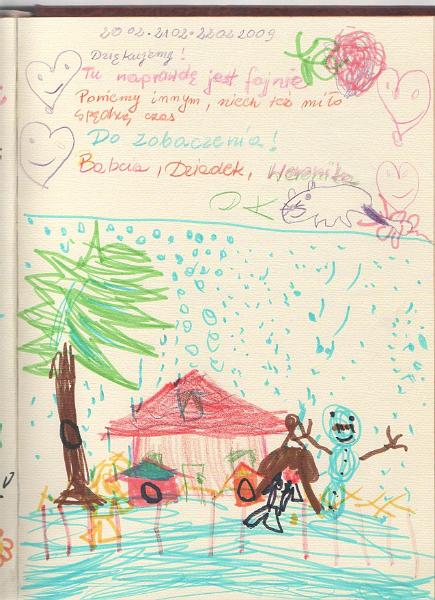 20.02 - 21.02 - 22.02 2009
Dziękujemy!
Tu naprawdę jest fajnie
Powiemy innym, niech też miło
spędzą czas
Do zobaczenia!
Babcia, Dziadek, Weronika
OK